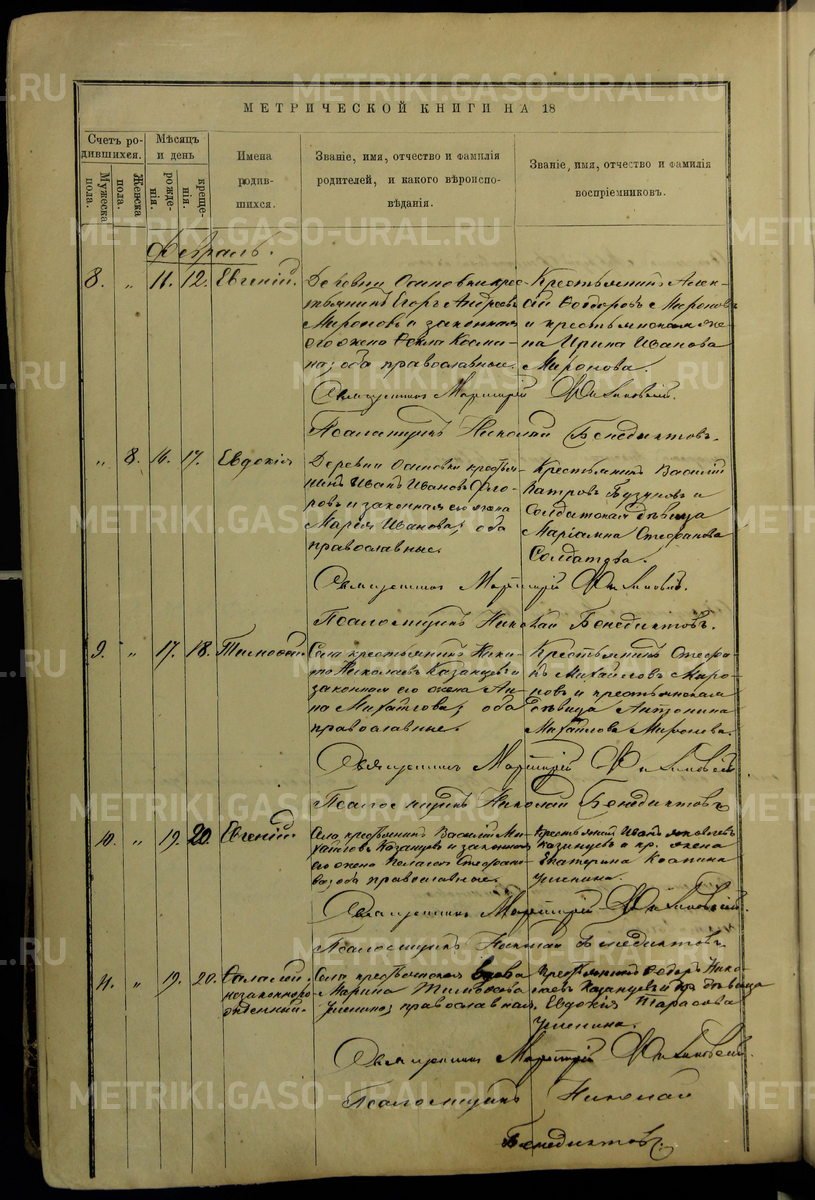 МЕТРИЧЕСКОЙ КНИГИ НА 18
Счетъ родившихся.
Мужеска пола.
Женска пола.
Мѣсяцъ и день
рожденія.
крещенія.
Имена родившихся.
Званіе, имя, отчество и фамилія родителей, и какого вѣроисповѣданія.
Званіе, имя, отчество и фамилія воспріемниковъ.
Февраль.
8. „ 11. 12. Евгеній.
Деревни Осиновки крес-
тьянинъ Егоръ Андреевъ
Мироновъ и законная
его жена Фекла Косми-
на; оба православные.
Крестьянинъ Алек-
сѣй Ѳеодоровъ Мироновъ
и крестьянская же-
на Ирина Иванова
Миронова.
Священникъ Мартирій
Псаломщикъ Николай Бенедиктовъ.
„ 8. 16. 17. Евдокія
Деревни Осиновки крестья-
нинъ Иванъ Ивановъ
и законная его жена
Марія Иванова; оба
православные.
Крестьянинъ Василій
Петровъ и
Солдатская дѣвица
Маріамна Стефанова
Священникъ Мартирій
Псаломщикъ Николай Бенедиктовъ.
9. „ 17. 18. Тимоѳей.
Села крестьянинъ Ники-
та Николаевъ Казанцевъ и
законная его жена Ан-
на Михайлова; оба
православные.
Крестьянинъ Стефа-
нъ Михайловъ Миро-
новъ и крестьянская
дѣвица Антонина
Михайлова Миронова.
Священникъ Мартирій
Псаломщикъ Николай Бенедиктовъ
10. „ 19. 20. Евгеній
Села крестьянинъ Василій Ми-
хайловъ Казанцевъ и законная
его жена Пелагея Стефано-
ва; оба православные.
Крестьянинъ Иванъ Яковлевъ
Казанцевъ и кр. жена
Екатерина
Священникъ Мартирій
Псаломщикъ Николай Бенедиктовъ.
11. „ 19. 20.
незаконнорожденный.
Села крестьянская вдова
Марина Тимоѳеева
православная.
Крестьянинъ Ѳеодоръ Нико-
лаевъ Казанцевъ и кр. дѣвица
Евдокія Тарасова
Священникъ Мартирій
Псаломщикъ Николай
Бенедиктовъ.
METRIKI.GASO-URAL.RU